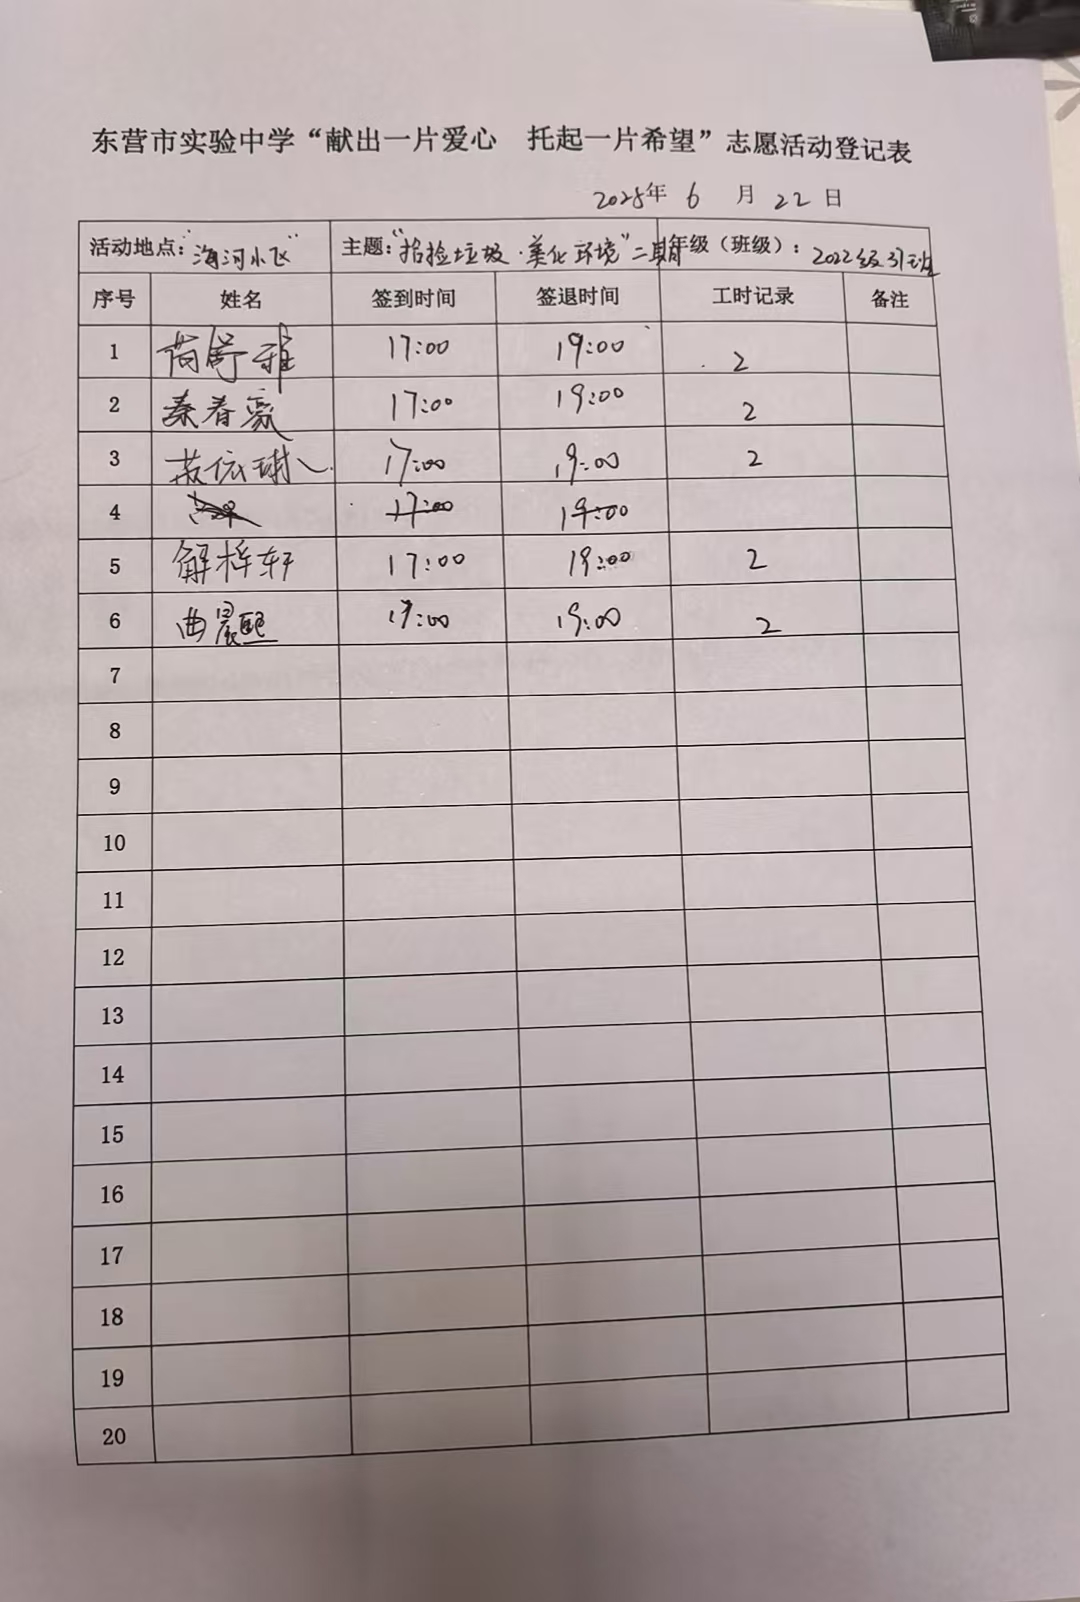 东营市实验中学“献出一片爱心 托起一片希望”志愿活动登记表
2025年 6 月 22 日
活动地点：“海河小区” 主题：“捡捡垃圾·美化环境”二期 年级（班级）：2022级31班
序号 姓名 签到时间 签退时间 工时记录 备注
1 舒雅 17:00 19:00 2
2 秦春豪 17:00 19:00 2
3 苏依琳 17:00 19:00 2
4 17:00 19:00
5 解梓轩 17:00 19:00 2
6 曲晨熙 17:00 19:00 2
7
8
9
10
11
12
13
14
15
16
17
18
19
20